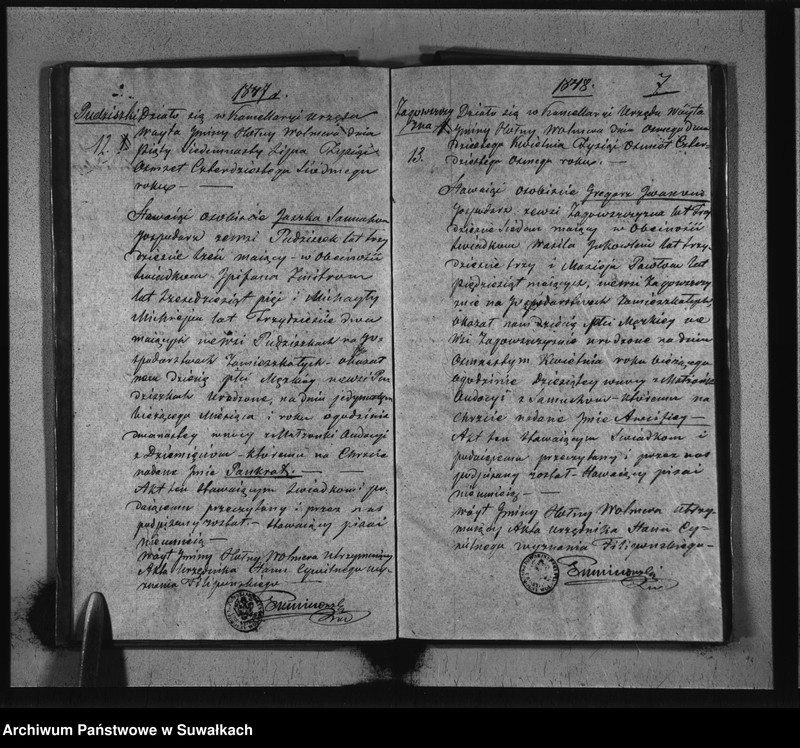 2.
1847 r.
Pudziszki
12.
Działo się w Kancellaryi Urzędu
Woyta Gminy Hołny Wolmera dnia
Siedemnastego Lipca Tysiąc
Osmset Czterdziestego Siódmego
roku —
Stawający osobiście Jaszka
Gospodarz zewsi Pudziszek lat trzy
dzieście sześć maiący — w Obecności
Świadkow
lat Sześćdziesiąt pięć i Michayły
lat Trzydzieście dwa
maiących na
spodarstwach Zamieszkałych — okazał
nam dziecię płci Męzkiey newsi Pu
dziszkach Urodzone, na dniu jedynastym
bieżącego Miesiąca i roku ogodzinie
dwanastey wnocy z Małżonki Audocyi
z — któremu na Chrzcie
nadane Imie Pankrat. —
Akt ten stawaiącym Świadkom i po
daiącemu przeczytany i przez nas
podpisany został. — Stawaiący pisać
nieumieią —
Woyt Gminy Hołny Wolmera utrzymuiący
Akta Urzędnika Stanu Cywilnego wy
znania Filipońskiego
1848.
7
Zagowszczy
zna
13.
Działo się w Kancellaryi Urzędu Woyta
Gminy Hołny Wolmera dnia Osmego Dwu
dziestego Kwietnia Tysiąc Osmset Czter-
dziestego Osmego roku. —
Stawaiący osobiście Gregorz Iwanow
Gospodarz zewsi Zagowszczyzna lat trzy
dzieście Siedm maiący w Obecności
Świadkow Wasila Jakowlew lat trzy-
dzieście trzy i Pawłow lat
pięćdziesiąt maiących, wewsi Zagowszczy
znie na Gospodarstwach Zamieszkałych
okazał nam dziecię płci Męzkiey we
Wsi Zagowszczyznie urodzone na dniu
Osmnastym Kwietnia roku bieżącego
ogodzinie dziesiątey wnocy z Małżonki
Audocyi z — któremu na
chrzcie nadane Imie
Akt ten Stawaiącym Świadkom i
podaiącemu przeczytany i przez nas
podpisany został — Stawaiący pisać
nieumieią —
Woyt Gminy Hołny Wolmera utrzy-
muiący Akta Urzędnika Stanu Cy-
wilnego wyznania Filipońskiego —
Archiwum Państwowe w Suwałkach